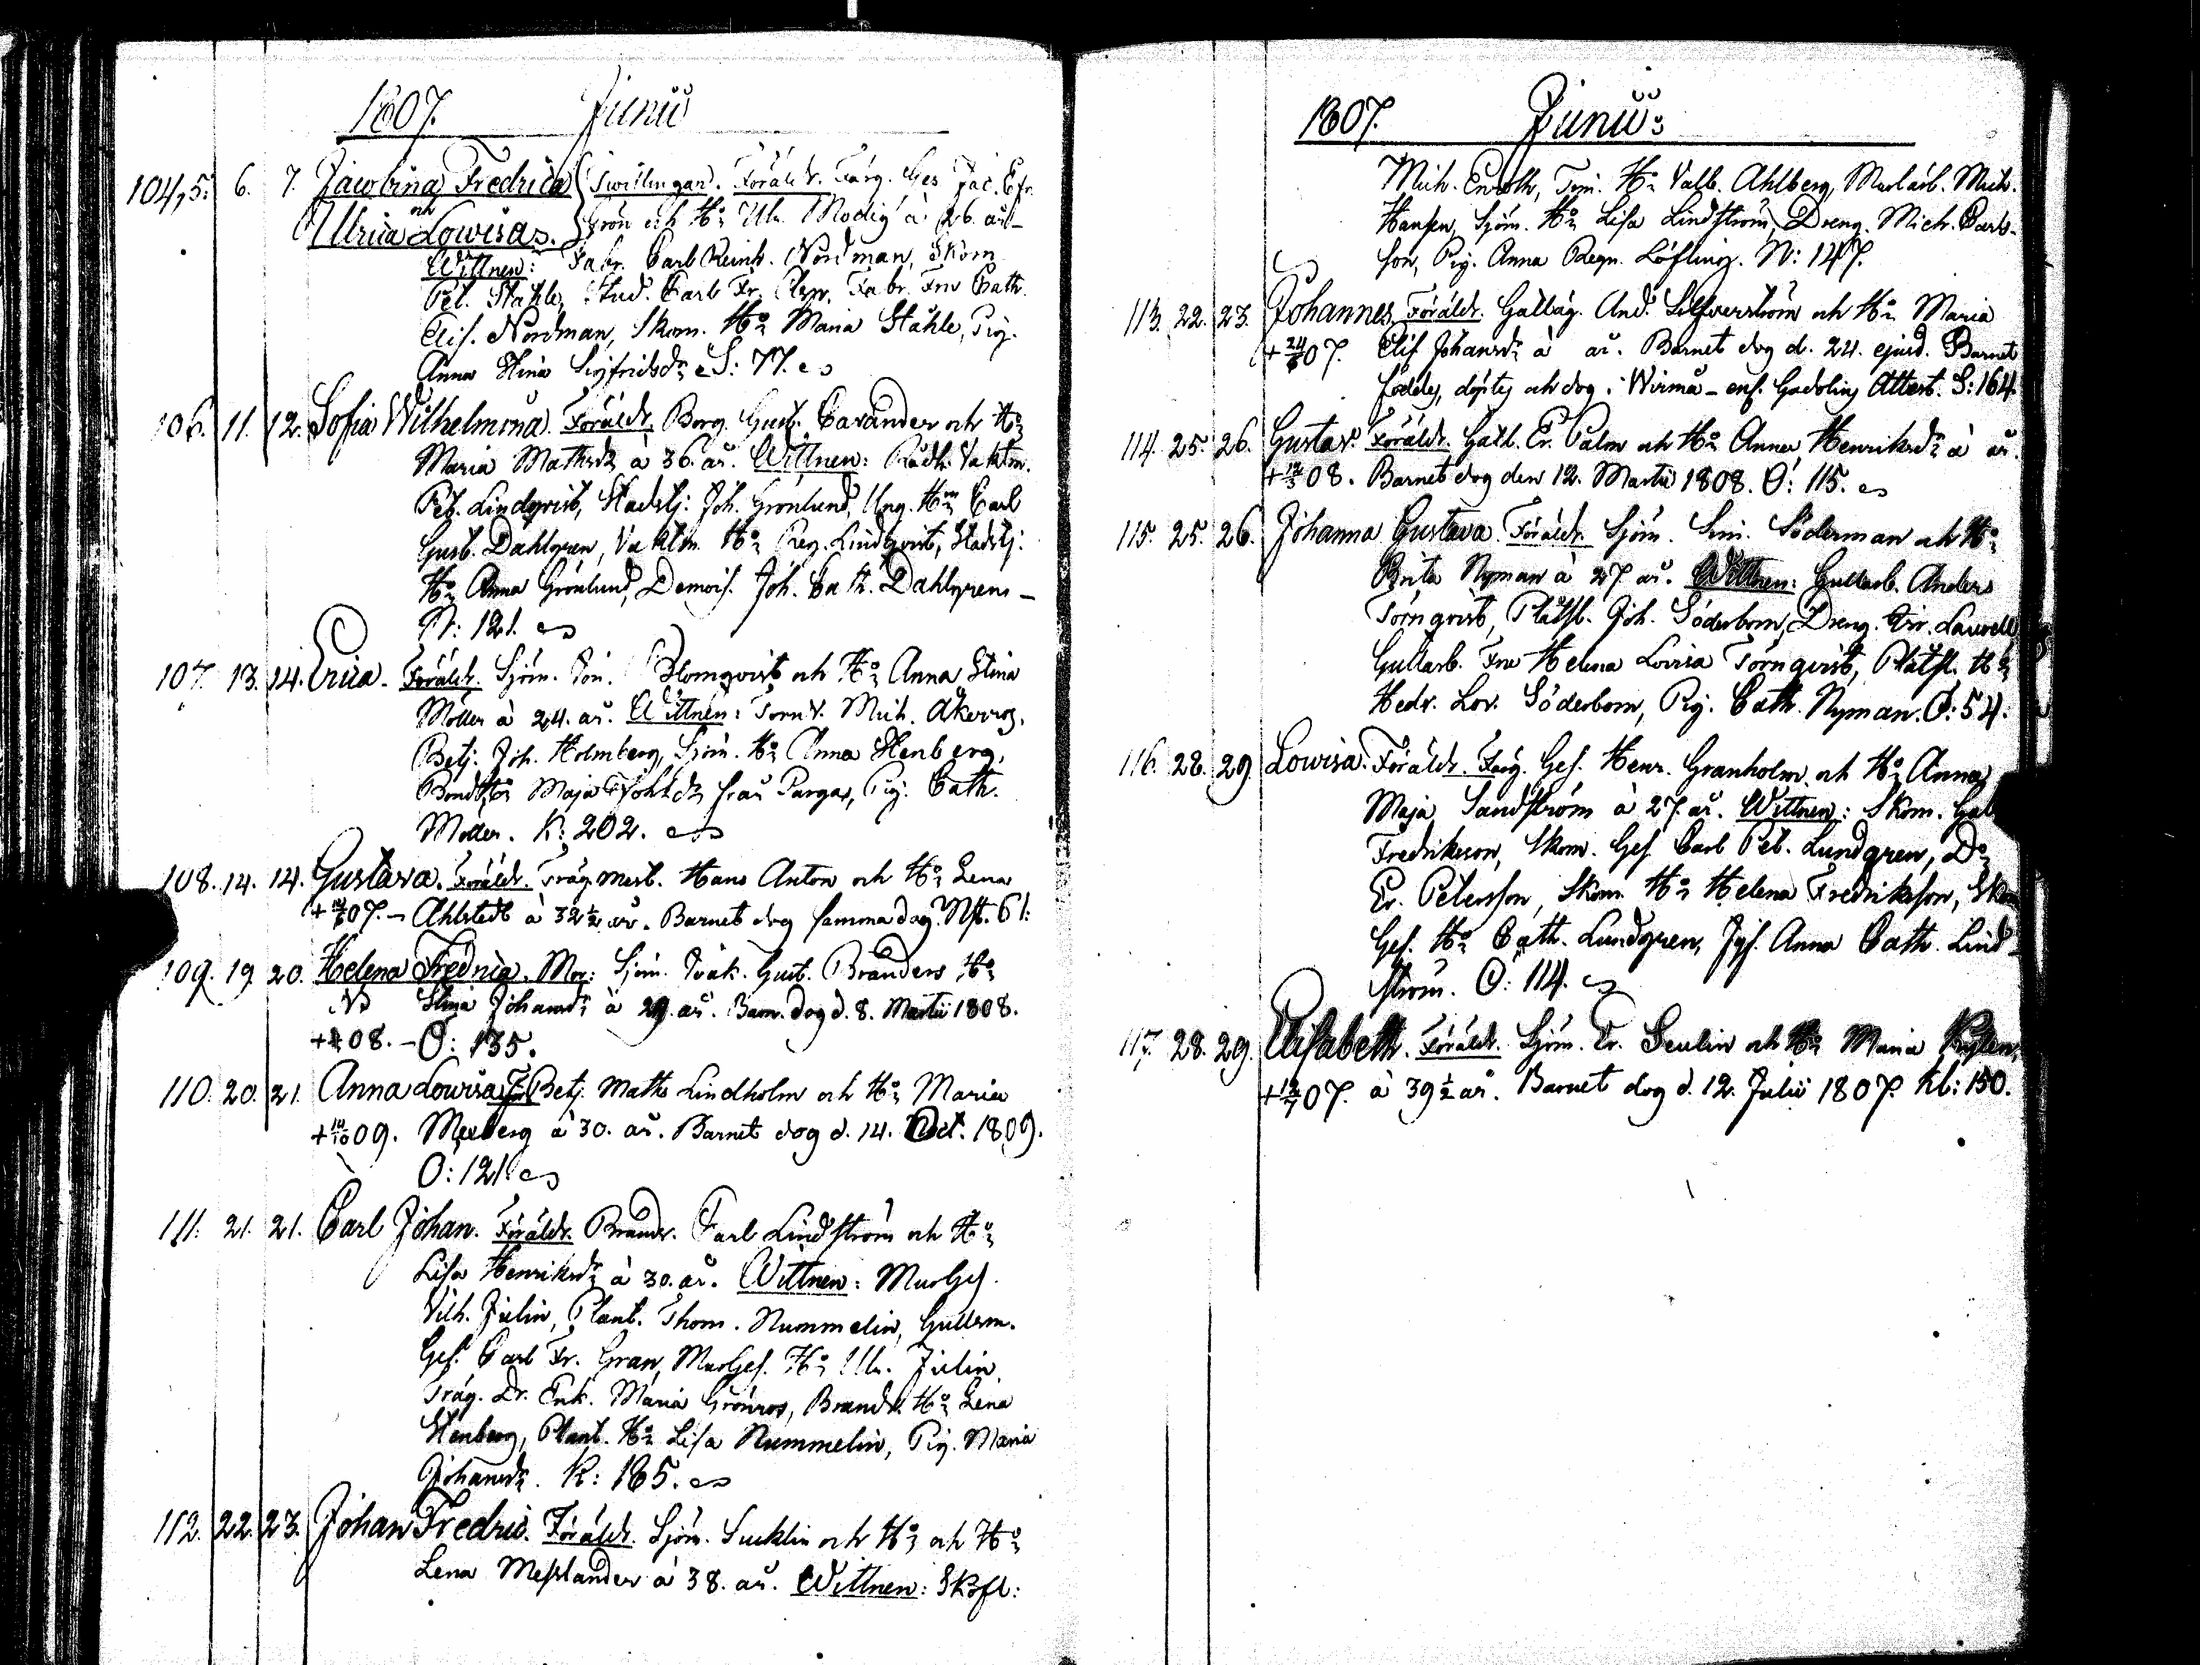 1807. Junii
104,5. 6. 7. Jacobina Fredrica Twillingar. Föräldr. Färg. Ges Jac. Efr.
och
Ulrica Lowisa. Grön och Hu Ulr. Modig à 26. år
Wittnen: Fabr. Carl Reinh. Nordman, Skom
Pet. Ståhle, Stud. Carl Fr. Fabr. Fru Cath.
Elis. Nordman, Skom. Hu Maria Ståhle, Pig.
Anna Stina Sigfridsdr S: 77.
106. 11. 12. Sofia Wilhelmina. Föräldr. Borg. Gust. Cavander och Hu
Maria Mathsdr à 36. år. Wittnen: Rådh. Vaktm.
Pet. Lindqvist, Stadstj: Joh. Grönlund, Ung. Hrr Carl
Gust. Dahlgren, Vaktm. Hu Reg. Lindqvist, Stadstj:
Hu Anna Grönlund, Demois. Joh. Cath. Dahlgren
N: 121.
107. 13. 14. Erica. Föräldr. Sjöm. Blomqvist och Hu Anna Stina
Möller à 24. år. Wittnen: Mich. Åkerros,
Betj: Joh. Holmberg, Sjöm. Hu Anna Stenberg,
Maja från Pargas, Pig. Cath.
Möller. K: 202.
108. 14. 14. Gustava. Föräldr. Trägmest. Hans Anton och Hu Lena
+14/6 07. Ahlstedt à 32½ år. Barnet dog samma dag. Nst. 61:
109. 19. 20. Helena Fredrica. Mor: Sjöm. Gust. Branders Hu
Stina Johansdr à 29. år. Barn. dog d. 8. Martii 1808.
08. O: 135.
110. 20. 21. Anna Lowisa För. Betj. Math Lindholm och Hu Maria
+14/10 09. Mexberg à 30. år. Barnet dog d. 14. Oct. 1809.
O: 121.
111. 21. 21. Carl Johan. Föräldr. Brandv. Carl Lindström och Hu
Lisa Henriksdr à 30. år. Wittnen: MurGes.
Vilh. Julin, Plant. Thom. Nummelin, Gullsm.
Ges. Carl Fr. Gran, MurGes. Hu Ulr. Julin,
Träg. Dr. Enk. Maria Grönros, Brandv. Hu Lena
Stenberg, Plant. Hu Lisa Nummelin, Pig. Maria
Johansdr. K: 165.
112. 22. 23. Johan Fredric. Föräldr. Sjöm. Sucklin och Hu och Hu
Lena Messlander à 38. år. Wittnen: Skofl:
1807. Junii:
Mich. Enroth, Tim. Hu Valb. Ahlberg, Mich.
Hansen, Sjöm. Hu Lisa Lindström, Dreng. Mich. Carls-
son, Pig. Anna Regn. Löfling. N: 147.
113. 22. 23. Johannes. Föräldr. And. Silfverström och Hu Maria
+24/6 07. Elis Johansdr à år. Barnet dog d. 24. ejusd. Barnet
föddes, döptes och dog i Wirmå – enl. Gadolins Attest. S: 164.
114. 25. 26. Gustav. Föräldr. Er. Palm och Hu Anna Henriksdr à år.
+12/3 08. Barnet dog den 12. Martii 1808. O: 115.
115. 25. 26. Johanna Gustava. Föräldr. Sjöm. Sim. Söderman och Hu
Brita Nyman à 27 år. Wittnen: Gullarb. Anders
Törnqvist, Plåtsl. Joh. Söderbom, Dreng. Laurell
Gullarb. Fru Helena Lovisa Törnqvist, Plåtsl. Hu
Hedv. Lov. Söderbom, Pig. Cath. Nyman. O: 54.
116. 28. 29. Lowisa. Föräldr. Färg. Ges. Henr. Granholm och Hu Anna
Maja Sandström à 27. år. Wittnen: Skom. Gab
Fredrikson, Skom. Ges Carl Pet. Lundgren, Do
Er. Petersson, Skom. Hu Helena Fredrikson, Skom
Ges. Hu Cath. Lundgren, Jgf. Anna Cath. Lind-
ström. O: 114.
117. 28. 29. Elisabeth. Föräldr. Sjöm. Er. Seulin och Hu Maria
+12/7 07. à 39½ år. Barnet dog d. 12. Julii 1807. Kl: 150.